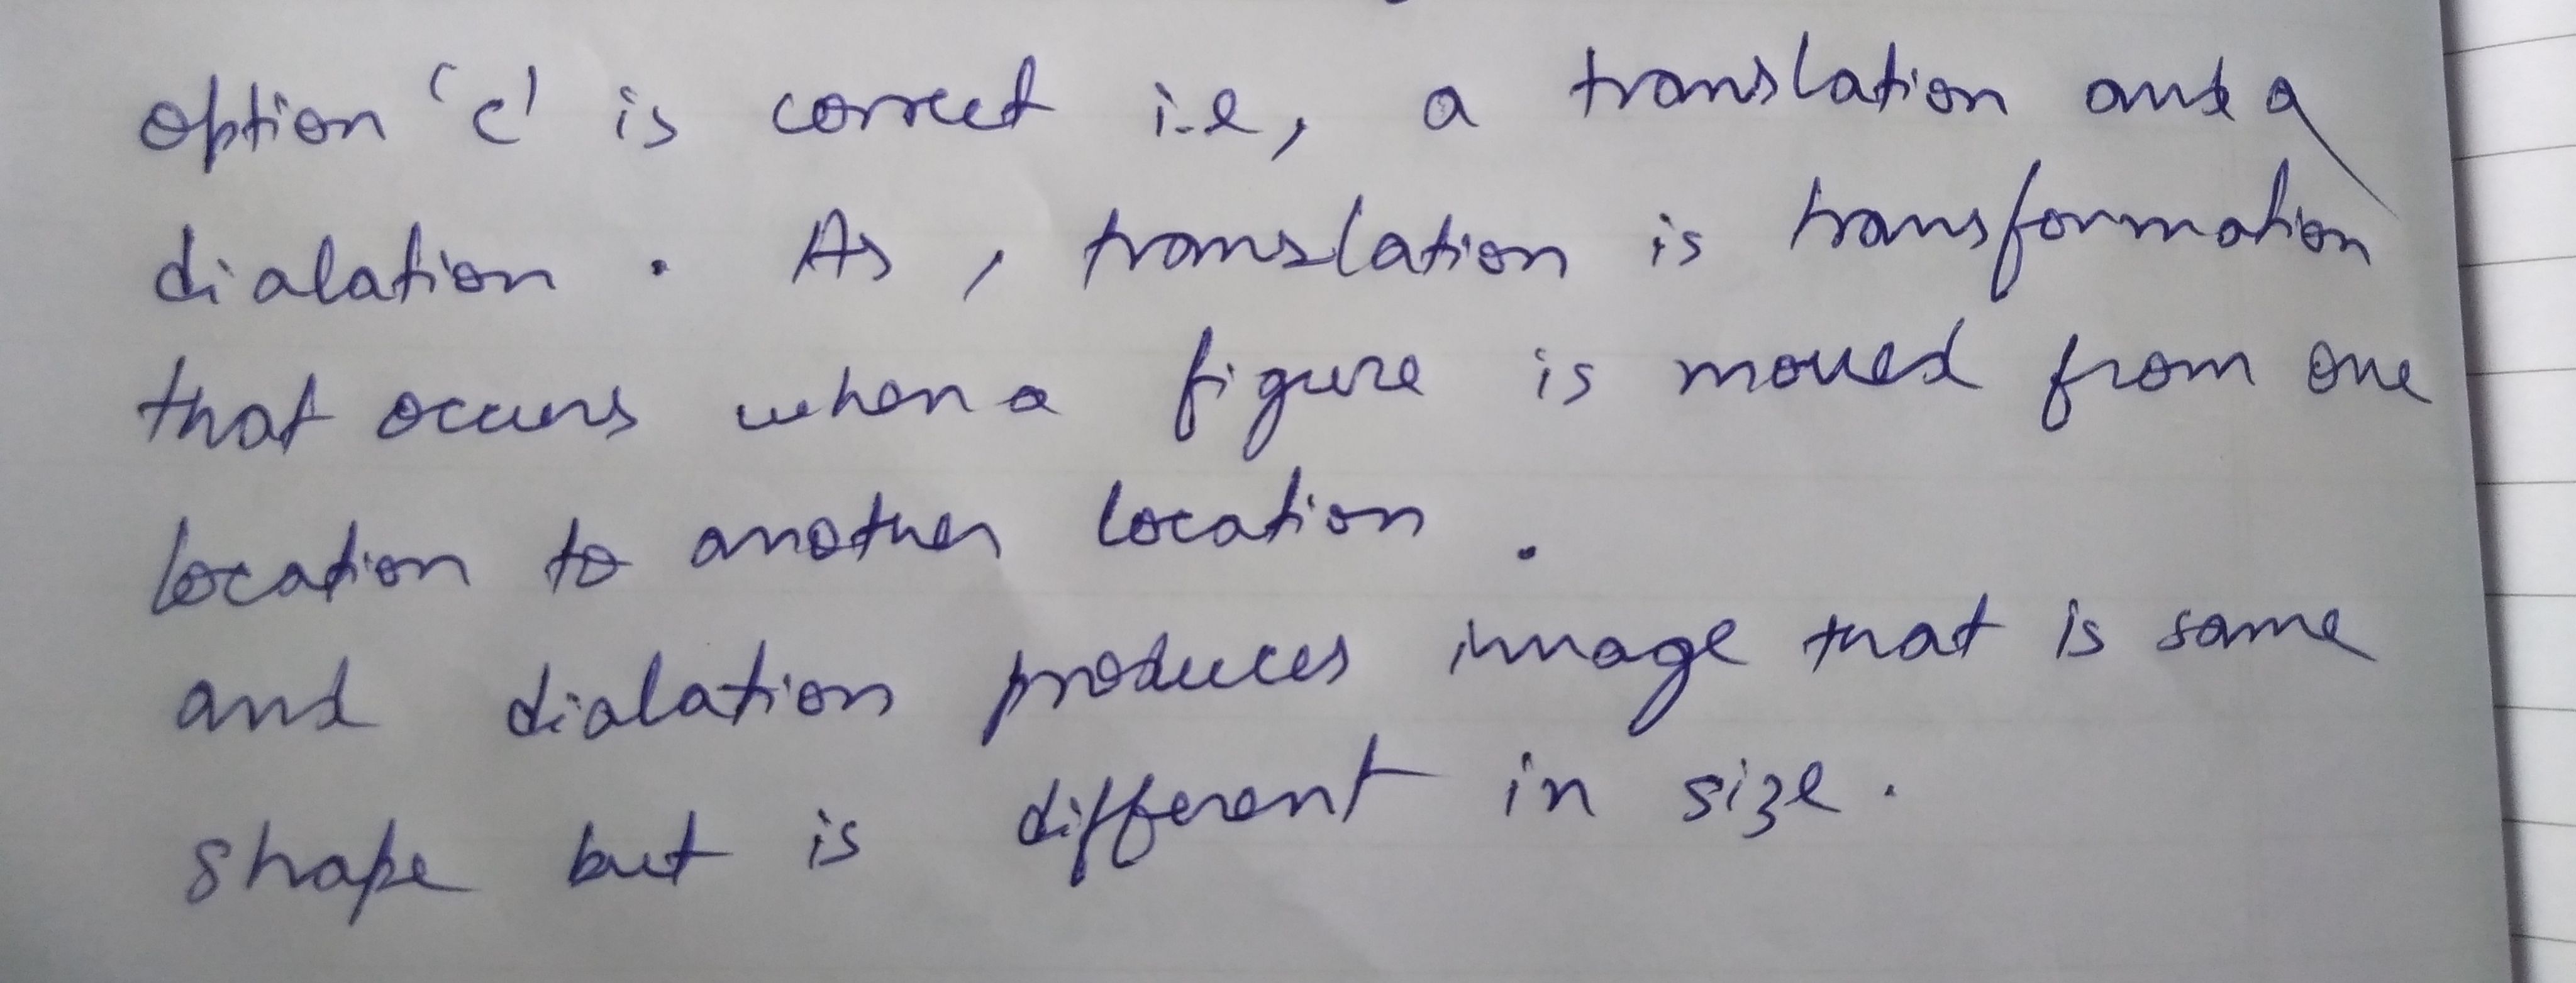 option 'c' is correct i.e, a translation and a
dialation . As , translation is transformation
that occurs when a figure is moved from one
location to another location .
and dialation produces image that is same
shape but is different in size .